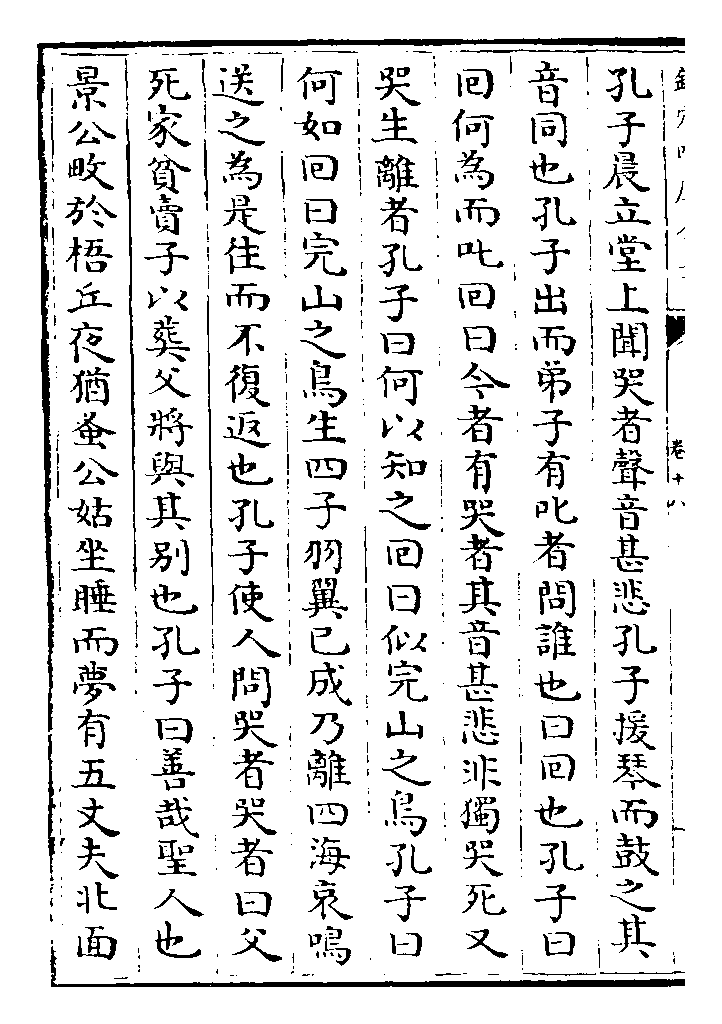 卷十八
孔子晨立堂上聞哭者聲音甚悲孔子援琴而鼓之其
音同也孔子出而弟子有叱者問誰也曰回也孔子曰
回何為而叱回曰今者有哭者其音甚悲非獨哭死又
哭生離者孔子曰何以知之回曰似完山之鳥孔子曰
何如回曰完山之鳥生四子羽翼已成乃離四海哀鳴
送之為是往而不復返也孔子使人問哭者哭者曰父
死家貧賣子以葬父將與其别也孔子曰善哉聖人也
景公畋於梧丘夜猶蚤公姑坐睡而夢有五丈夫北面